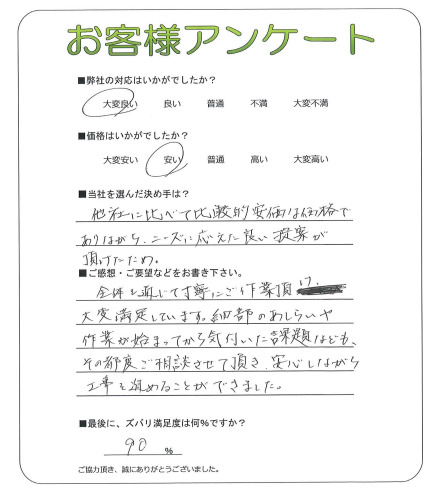 お客様アンケート
■弊社の対応はいかがでしたか?
大変良い 良い 普通 不満 大変不満
■価格はいかがでしたか?
大変安い 安い 普通 高い 大変高い
■当社を選んだ決め手は?
他社に比べて比較的安価な価格で
ありながら、ニーズに応えた良い提案が
頂けたため。
■ご感想・ご要望などをお書き下さい。
全体を通じて丁寧にご作業頂け、
大変満足しています。細部のあしらいや
作業が始まってから気付いた課題なども、
その都度ご相談させて頂き、安心しながら
工事を進めることができました。
■最後に、ズバリ満足度は何%ですか?
90 %
ご協力頂き、誠にありがとうございました。